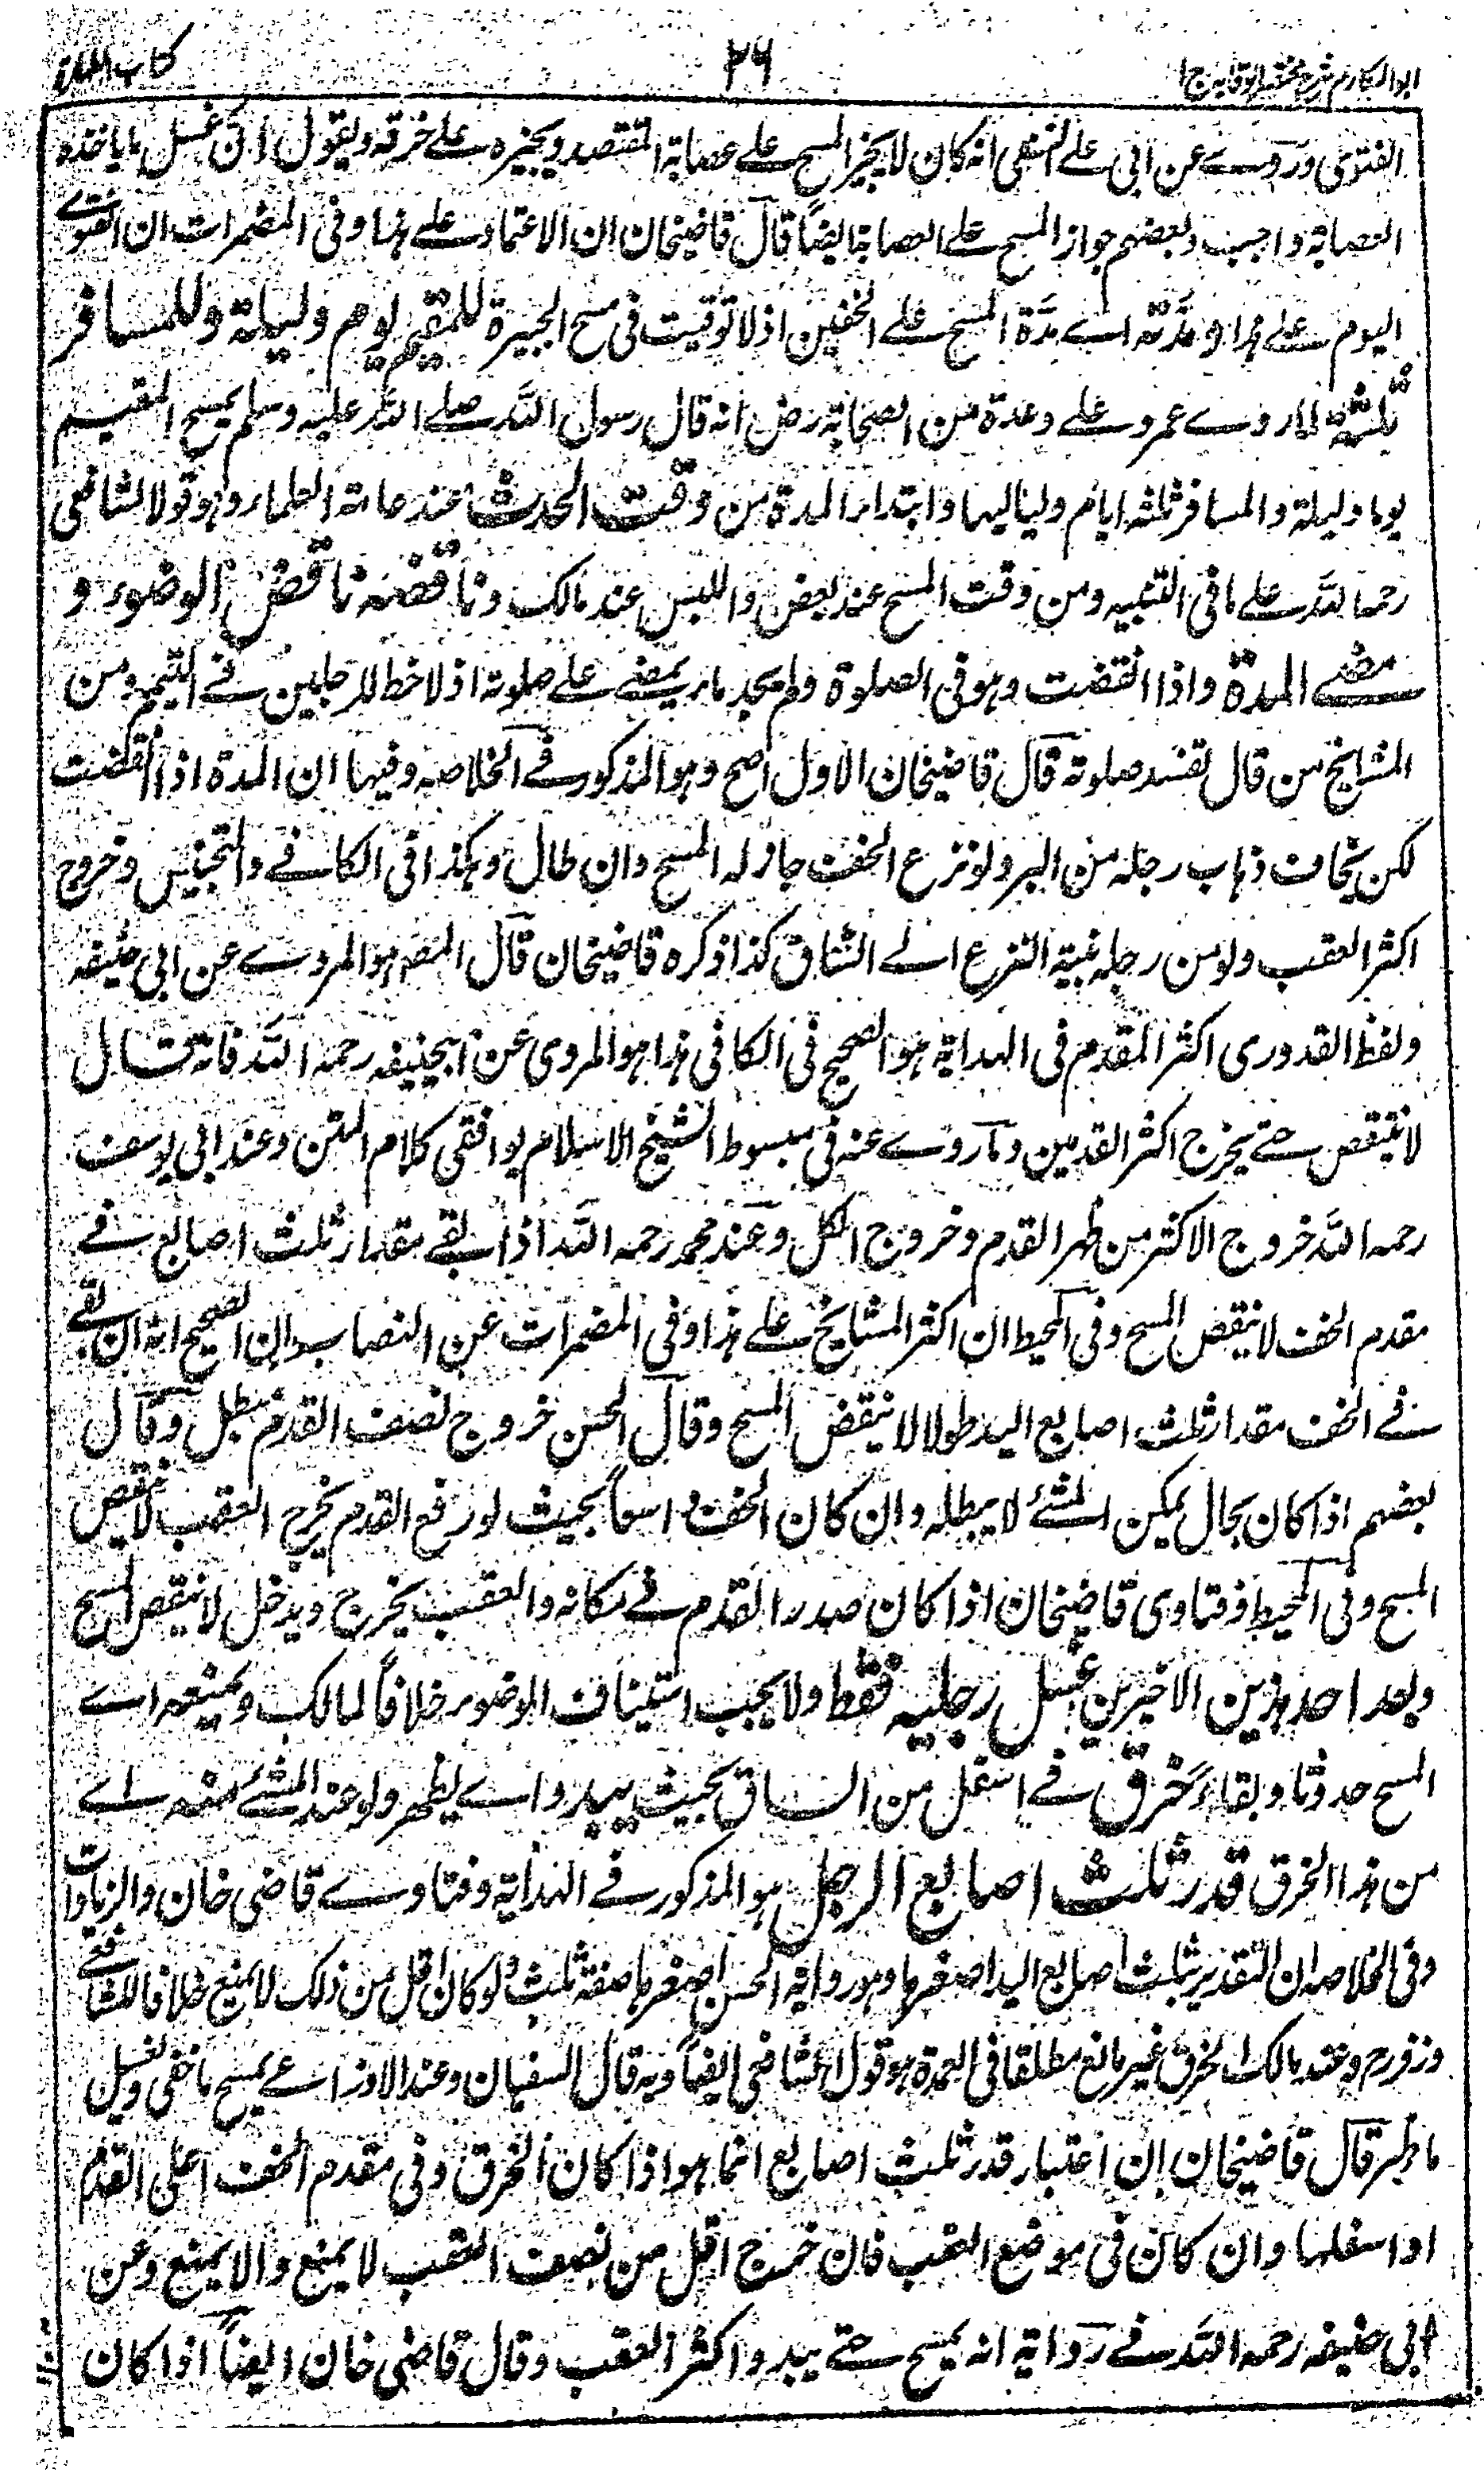 ابو المکارم شرح مختصر الوقایہ ج ۱ ۲۶ کتاب الطہارۃ
الفتوی وروے عن ابی علے النسفی انہ کان لا یجیز المسح علے عصابۃ المفتصد ویجیزہ علے خرقہ ویقول ان غسل ما یاخذہ
العصابۃ واجب وبعضہم جواز المسح علے العصابۃ ایضاً قال قاضیخان ان الاعتماد علے ہذا وفی المضمرات ان الفتوے
الیوم علے ہذا ومدتہ اے مدۃ المسح علے الخفین اذ لا توقیت فی مسح الجبیرۃ للمقیم یوم ولیلۃ وللمسافر
ثلثۃ لما روے عمر وعلے وعدۃ من الصحابۃ رض انہ قال رسول اللہ صلے اللہ علیہ وسلم یمسح المقیم
یوما ولیلۃ والمسافر ثلثۃ ایام ولیالیہا وابتداء المدۃ من وقت الحدث عند عامۃ العلماء وہو قول الشافعی
رحمہ اللہ علے ما فی التنبیہ ومن وقت المسح عند بعض واللبس عند مالک وناقضہ ناقض الوضوء و
مضے المدۃ واذا انقضت وہو فی الصلوۃ ولم یجد ماء یمضے علے صلوتہ اذ لا حظ للرجلین فے التیمم ومن
المشایخ من قال تفسد صلوتہ قال قاضیخان الاول اصح وہو المذکور فے الخلاصہ وفیہا ان المدۃ اذا انقضت
لکن یخاف ذہاب رجلہ من البرد لو نزع الخف جاز لہ المسح وان طال وہکذا فی الکافے والتجنیس وخروج
اکثر العقب ولو من رجلہ بنیۃ النزع الے الساق کذا ذکرہ قاضیخان قال المص ہو المروے عن ابی حنیفہ
ولفظ القدوری اکثر المقدم فی الہدایۃ ہو الصحیح فی الکافی ہذا ہو المروی عن ابیحنیفہ رحمہ اللہ فانہ قال
لا ینتقض حتے یخرج اکثر القدمین وما روے عنہ فی مبسوط الشیخ الاسلام یوافقی کلام المتن وعند ابی یوسف
رحمہ اللہ خروج الاکثر من ظہر القدم وخروج الکل وعند محمد رحمہ اللہ اذا بقے مقدار ثلث اصابع فے
مقدم الخف لا ینتقض المسح وفی المحیط ان اکثر المشایخ علے ہذا وفی المضمرات عن النصاب وان الصحیح انہ ان بقے
فے الخف مقدار ثلث اصابع الید طولا لا ینتقض المسح وقال الحسن خروج نصف القدم مبطل وقال
بعضہم اذا کان بحال یمکن المشئے لا یبطلہ وان کان الخف واسعاً بحیث لو رفع القدم یخرج العقب لا ینتقض
المسح وفی المحیط وفتاوی قاضیخان اذا کان صدر القدم فے مکانہ والعقب یخرج ویدخل لا ینتقض المسح
وبعد احد ہذین الاخیرین غسل رجلیہ فقط ولا یجب استیناف الوضوء خلافاً لمالک ویمنعہ اے
المسح حدوثا وبقاء خرق فے اسفل من الساق بحیث یبدو اے یظہر ولو عند المشئے منہ اے
من ہذا الخرق قدر ثلث اصابع الرجل ہو المذکور فے الہدایۃ وفتاوے قاضی خان والزیادات
وفی الخلاصہ ان التقدیر بثلث اصابع الید اصغرہا وہو روایۃ الحسن اصغرہا صفۃ ثلث ولو کان اقل من ذلک لا یمنع خلافا للشافعے
وزفر رح وعند مالک الخرق غیر مانع مطلقا فی العمدۃ ہو قول الشافعی ایضاً وبہ قال السفیان وعند الاوزاعے یمسح ما خفی ویغسل
ما ظہر قال قاضیخان ان اعتبار قدر ثلث اصابع انما ہو اذا کان الخرق وفی مقدم الخف اعلی القدم
او اسفلہا وان کان فی موضع العقب فان خرج اقل من نصف العقب لا یمنع والا یمنع وعن
ابی حنیفہ رحمہ اللہ فے روایۃ انہ یمسح حتے یبدو اکثر العقب وقال قاضی خان ایضاً اذا کان